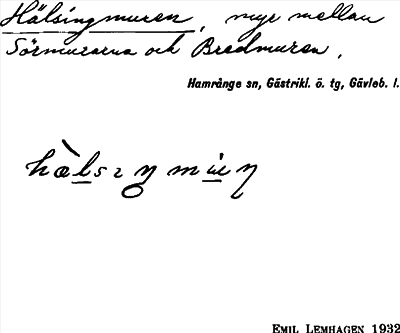 Hälsingmuren, myr mellan
Sörmurarna och Bredmuren.
Hamrånge sn, Gästrikl. ö. tg, Gävleb. l.
EMIL LEMHAGEN 1932